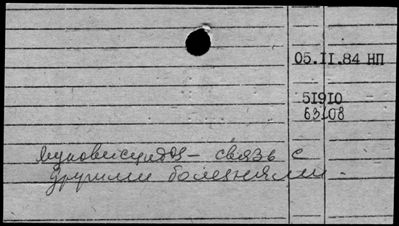 05.II.84 НП
51910
63108
Муковисцидоз — связь с
другими болезнями.